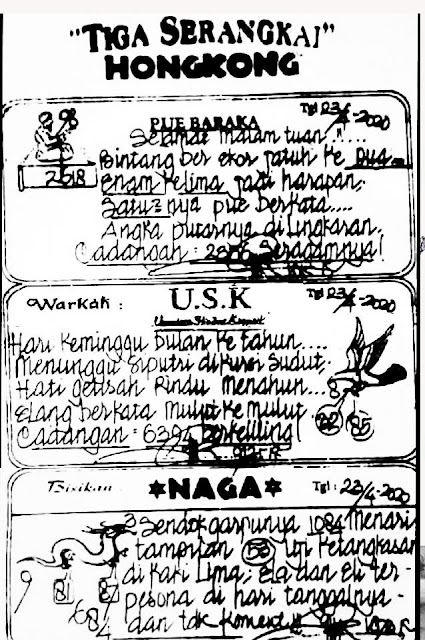 "TIGA SERANGKAI"
HONGKONG
PUE BARAKA
Tgl 23/4-2020
Selamat malam tuan".....
Bintang ber ekor jatuh ke dua..
Enam kelima jadi harapan,
Satu2 nya pue berkata....
Angka putarnya di lingkaran.
Cadangan: Seragamnya!
2618
98
Warkah :
U.S.K
Tgl 23/4-2020
Hari keminggu bulan ke tahun.....
Menunggu siputri di kursi sudut.
Hati gelisah Rindu menahun...
Elang berkata mulut ke mulut
Cadangan = 6394 berkeliling!
85
Bisikan
*NAGA*
Tgl: 23/4-2020
Sendok garpunya 1084 Menari
tampilan uji ketangkasan
di kari lima, Ela dan Eli ter-
pesona di hari tanggalnya -
dan tdk komen
9